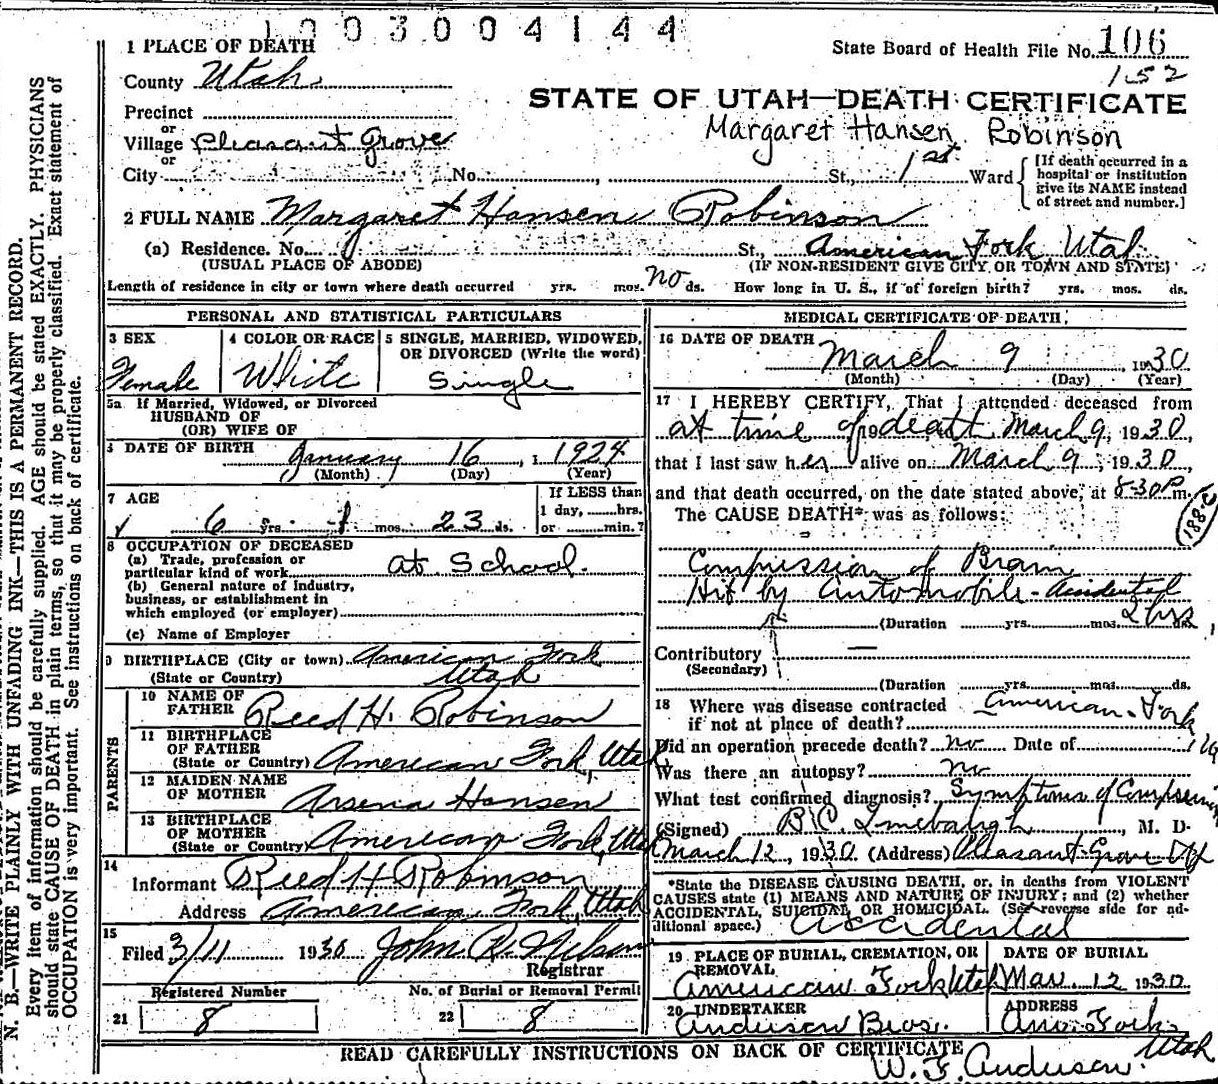 1003004144
1 PLACE OF DEATH
State Board of Health File No. 106
152
County Utah
STATE OF UTAH—DEATH CERTIFICATE
Precinct
or
Village Pleasant Grove
Margaret Hansen Robinson
or
City No. , St., 1st Ward
[If death occurred in a hospital or institution give its NAME instead of street and number.]
2 FULL NAME Margaret Hansen Robinson
(a) Residence. No. St., American Fork Utah
(USUAL PLACE OF ABODE) (IF NON-RESIDENT GIVE CITY OR TOWN AND STATE)
Length of residence in city or town where death occurred yrs. mos. no ds. How long in U. S., if of foreign birth? yrs. mos. ds.
PERSONAL AND STATISTICAL PARTICULARS
3 SEX
Female
4 COLOR OR RACE
White
5 SINGLE, MARRIED, WIDOWED, OR DIVORCED (Write the word)
Single
5a If Married, Widowed, or Divorced
HUSBAND OF
(OR) WIFE OF
6 DATE OF BIRTH
January 16, 1924
(Month) (Day) (Year)
7 AGE
6 yrs. 1 mos. 23 ds.
If LESS than
1 day, hrs.
or min.?
8 OCCUPATION OF DECEASED
(a) Trade, profession or
particular kind of work At School.
(b) General nature of industry,
business, or establishment in
which employed (or employer)
(c) Name of Employer
9 BIRTHPLACE (City or town) American Fork
(State or Country) Utah
PARENTS
10 NAME OF
FATHER Reed H. Robinson
11 BIRTHPLACE
OF FATHER
(State or Country) American Fork, Utah
12 MAIDEN NAME
OF MOTHER Arsena Hansen
13 BIRTHPLACE
OF MOTHER
(State or Country) American Fork, Utah
14
Informant Reed H Robinson
Address American Fork, Utah
15
Filed 3/11 1930 John R Nelson
Registrar
Registered Number No. of Burial or Removal Permit
21 8 22 8
MEDICAL CERTIFICATE OF DEATH
16 DATE OF DEATH
March 9, 1930
(Month) (Day) (Year)
17 I HEREBY CERTIFY, That I attended deceased from
at time of 19 death March 9, 1930,
that I last saw her alive on March 9, 1930,
and that death occurred, on the date stated above, at 8-30 P m.
The CAUSE DEATH* was as follows:
188c
Compression of Brain
Hit by automobile - accidental
(Duration yrs. mos. 2 hrs
Contributory —
(Secondary)
(Duration yrs. mos. ds.
18 Where was disease contracted
if not at place of death? American Fork
Did an operation precede death? no Date of 19
Was there an autopsy? no
What test confirmed diagnosis? Symptoms of Compression
(Signed) B C. Linebaugh, M. D.
March 12, 1930 (Address) Pleasant Grove Ut
*State the DISEASE CAUSING DEATH, or, in deaths from VIOLENT
CAUSES state (1) MEANS AND NATURE OF INJURY; and (2) whether
ACCIDENTAL, SUICIDAL OR HOMICIDAL. (See reverse side for ad-
ditional space.) Accidental
19 PLACE OF BURIAL, CREMATION, OR
REMOVAL
American Fork Utah
DATE OF BURIAL
Mar. 12 1930
20 UNDERTAKER
Anderson Bros.
ADDRESS
Am. Fork
Utah
READ CAREFULLY INSTRUCTIONS ON BACK OF CERTIFICATE
W. F. Anderson.
N. B.—WRITE PLAINLY WITH UNFADING INK—THIS IS A PERMANENT RECORD.
Every item of information should be carefully supplied. AGE should be stated EXACTLY. PHYSICIANS
should state CAUSE OF DEATH in plain terms, so that it may be properly classified. Exact statement of
OCCUPATION is very important. See instructions on back of certificate.